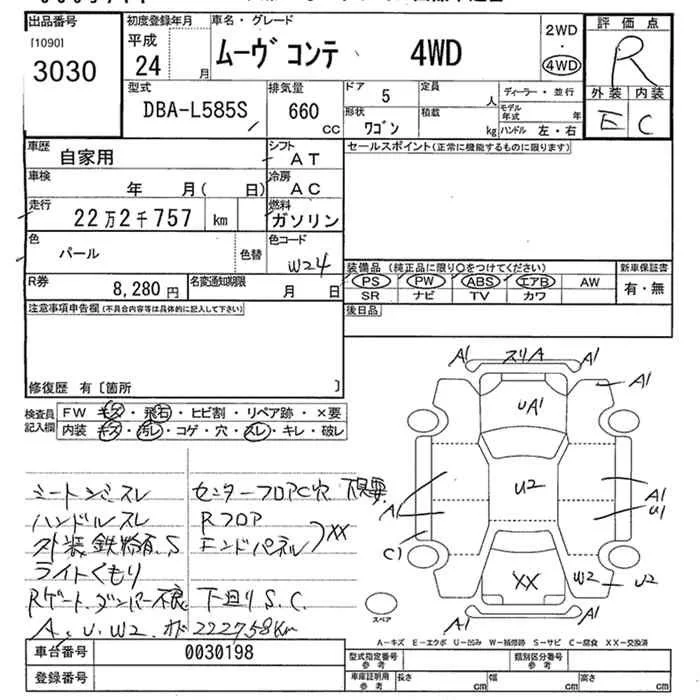 出品番号
[1090]
3030
初度登録年月
平成
24 月
車名・グレード
ムーヴ コンテ 4WD
2WD
・
4WD
評価点
R
外装 内装
E C
型式
DBA-L585S
排気量
660 CC
ドア 5
形状 ワゴン
定員 人
積載 kg
ディーラー・並行
モデル年式 年
ハンドル 左・右
車歴 自家用
シフト AT
車検 年 月( 日)
冷房 AC
走行 22万2千757 km
燃料 ガソリン
色 パール 色替
色コード W24
R券 8,280円
名変通知期限 月 日
セールスポイント(正常に機能するものに限ります)
装備品 (純正品に限り○をつけてください)
PS PW ABS エアB AW
SR ナビ TV カワ
新車保証書
有・無
後日品
注意事項申告欄(不具合内容等は具体的に記入して下さい)
修復歴 有〔箇所 〕
検査員記入欄
FW キズ・飛石・ヒビ割・リペア跡・×要
内装 キズ・汚レ・コゲ・穴・スレ・キレ・破レ
シートシミスレ
ハンドルスレ
外装鉄粉有.S
ライトくもり
Rゲートダンパー不良
A、U、W2.オド222758Km
センターフロアC穴 下見要
Rフロア
エンドパネル XX
下廻りS.C.
A1 スリA A1
A1
UA1
U2
A1
A1
U1
C1
XX
W2
U2
スペア
A-キズ E-エクボ U-凹み W-補修跡 S-サビ C-腐食 XX-交換済
車台番号 0030198
登録番号
型式指定番号 参考
類別区分番号 参考
車庫証明用 参考
長さ cm 幅 cm 高さ cm